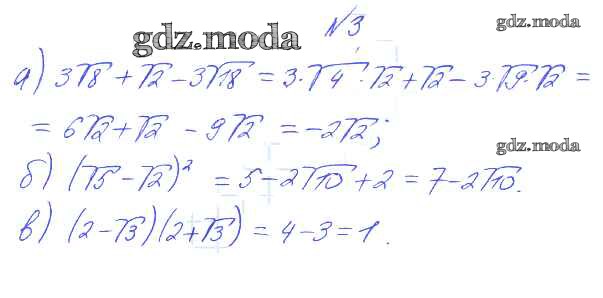 №3
gdz.moda
gdz.moda
а) 3√8 + √2 - 3√18 = 3·√4·√2 + √2 - 3·√9·√2 =
= 6√2 + √2 - 9√2 = -2√2;
gdz.moda
б) (√5 - √2)² = 5 - 2√10 + 2 = 7 - 2√10.
в) (2 - √3)(2 + √3) = 4 - 3 = 1.